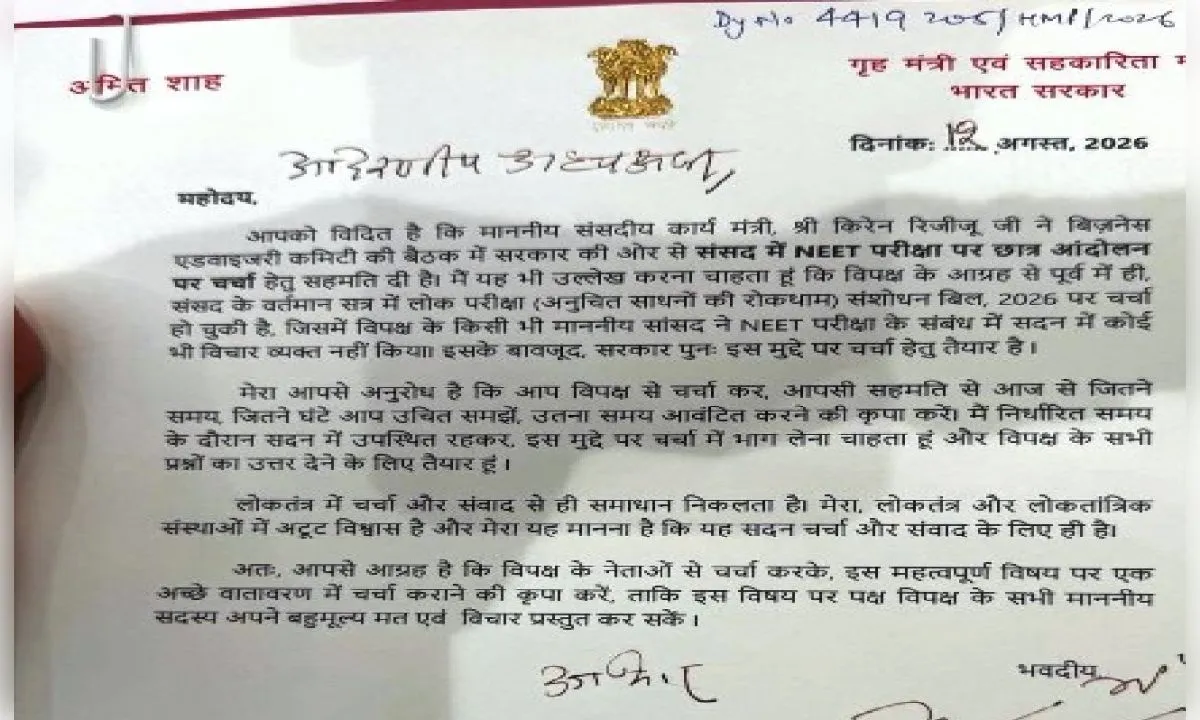 Dy No 4419 205/HMP/2026
अमित शाह
गृह मंत्री एवं सहकारिता
भारत सरकार
दिनांक: 12 अगस्त, 2026
आदरणीय अध्यक्षजी,
महोदय,
आपको विदित है कि माननीय संसदीय कार्य मंत्री, श्री किरेन रिजीजू जी ने बिज़नेस
एडवाइजरी कमिटी की बैठक में सरकार की ओर से संसद में NEET परीक्षा पर छात्र आंदोलन
पर चर्चा हेतु सहमति दी है। मैं यह भी उल्लेख करना चाहता हूं कि विपक्ष के आग्रह से पूर्व में ही,
संसद के वर्तमान सत्र में लोक परीक्षा (अनुचित साधनों की रोकथाम) संशोधन बिल, 2026 पर चर्चा
हो चुकी है, जिसमें विपक्ष के किसी भी माननीय सांसद ने NEET परीक्षा के संबंध में सदन में कोई
भी विचार व्यक्त नहीं किया। इसके बावजूद, सरकार पुनः इस मुद्दे पर चर्चा हेतु तैयार है।
मेरा आपसे अनुरोध है कि आप विपक्ष से चर्चा कर, आपसी सहमति से आज से जितने
समय, जितने घंटे आप उचित समझें, उतना समय आवंटित करने की कृपा करें। मैं निर्धारित समय
के दौरान सदन में उपस्थित रहकर, इस मुद्दे पर चर्चा में भाग लेना चाहता हूं और विपक्ष के सभी
प्रश्नों का उत्तर देने के लिए तैयार हूं।
लोकतंत्र में चर्चा और संवाद से ही समाधान निकलता है। मेरा, लोकतंत्र और लोकतांत्रिक
संस्थाओं में अटूट विश्वास है और मेरा यह मानना है कि यह सदन चर्चा और संवाद के लिए ही है।
अतः, आपसे आग्रह है कि विपक्ष के नेताओं से चर्चा करके, इस महत्वपूर्ण विषय पर एक
अच्छे वातावरण में चर्चा कराने की कृपा करें, ताकि इस विषय पर पक्ष विपक्ष के सभी माननीय
सदस्य अपने बहुमूल्य मत एवं विचार प्रस्तुत कर सकें।
भवदीय